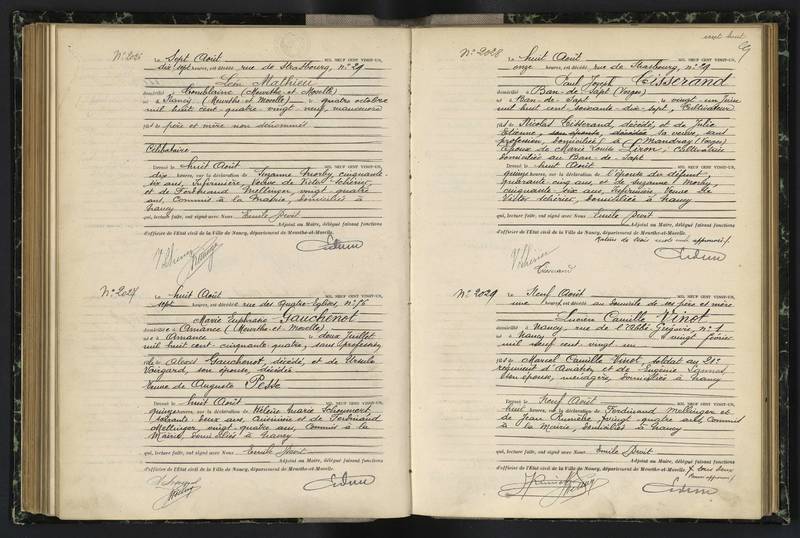 N° 2026
Le Sept Août MIL NEUF CENT VINGT-UN,
dix sept heures, est décédé rue de Strasbourg, n° 29
Léon Mathieu
domicilié à Tomblaine (Meurthe et Moselle)
né à Nancy (Meurthe et Moselle) le quatre octobre
mil huit cent quatre vingt neuf, manœuvre
fils de père et mère non dénommés
Célibataire
Dressé le huit Août MIL NEUF CENT VINGT-UN,
dix heures, sur la déclaration de Suzanne Morby, cinquante
six ans, Infirmière, Veuve de Victor Schérier,
et de Ferdinand Mellinger, vingt quatre
ans, Commis à la Mairie, domiciliés à
Nancy
qui, lecture faite, ont signé avec Nous Emile
Adjoint au Maire, délégué faisant fonctions
d'officier de l'Etat civil de la Ville de Nancy, département de Meurthe-et-Moselle.
N° 2027
Le huit Août MIL NEUF CENT VINGT-UN,
sept heures, est décédée rue des Quatre Eglises, n° 56
Marie Euphrasie Gauchenot
domiciliée à Amance (Meurthe et Moselle)
née à Amance le deux Juillet
mil huit cent cinquante quatre, sans profession
fille de Alexis Gauchenot, décédé, et de Ursule
son épouse, décédée
Veuve de Auguste
Dressé le huit Août MIL NEUF CENT VINGT-UN,
quinze heures, sur la déclaration de Marie
soixante deux ans, et de Ferdinand
Mellinger, vingt-quatre ans, Commis à la
Mairie, domiciliés à Nancy
qui, lecture faite, ont signé avec Nous Emile
Adjoint au Maire, délégué faisant fonctions
d'officier de l'Etat civil de la Ville de Nancy, département de Meurthe-et-Moselle.
sept huit
N° 2028
Le huit Août MIL NEUF CENT VINGT-UN,
onze heures, est décédé rue de Strasbourg, n° 29
Paul Joseph Tisserand
domicilié à Ban-de-Sapt (Vosges)
né à Ban-de-Sapt le vingt un Juin
mil huit cent soixante dix-sept, Cultivateur
fils de Nicolas Tisserand, décédé, et de Julie
Etienne, son épouse, décédée sa veuve, sans
profession, domiciliée à Mandray (Vosges)
Epoux de Marie Louise Cultivatrice
domiciliée au Ban-de-Sapt
Dressé le huit Août MIL NEUF CENT VINGT-UN,
quinze heures, sur la déclaration de l'épouse du défunt,
quarante cinq ans, et de Suzanne Morby,
cinquante six ans, Infirmière, Veuve de
Victor Schérier, domiciliée à Nancy
qui, lecture faite, ont signé avec Nous Emile
Adjoint au Maire, délégué faisant fonctions
d'officier de l'Etat civil de la Ville de Nancy, département de Meurthe-et-Moselle.
Rature de trois mots approuvée
Tisserand
N° 2029
Le Neuf Août MIL NEUF CENT VINGT-UN,
une heure, est décédé au domicile de ses père et mère
Lucien Camille Vinot
domicilié à Nancy, rue de l'Abbé Grégoire, n° 1
né à Nancy le vingt février
mil neuf cent vingt un
fils de Marcel Camille Vinot, soldat au 21e
régiment d'Aviation et de Eugénie
son épouse, ménagère, domiciliés à Nancy
Dressé le Neuf Août MIL NEUF CENT VINGT-UN,
huit heures, sur la déclaration de Ferdinand Mellinger et
de Jean vingt quatre ans, Commis
à la Mairie, domiciliés à Nancy
qui, lecture faite, ont signé avec Nous Emile
Adjoint au Maire, délégué faisant fonctions
d'officier de l'Etat civil de la Ville de Nancy, département de Meurthe-et-Moselle.
x tous deux